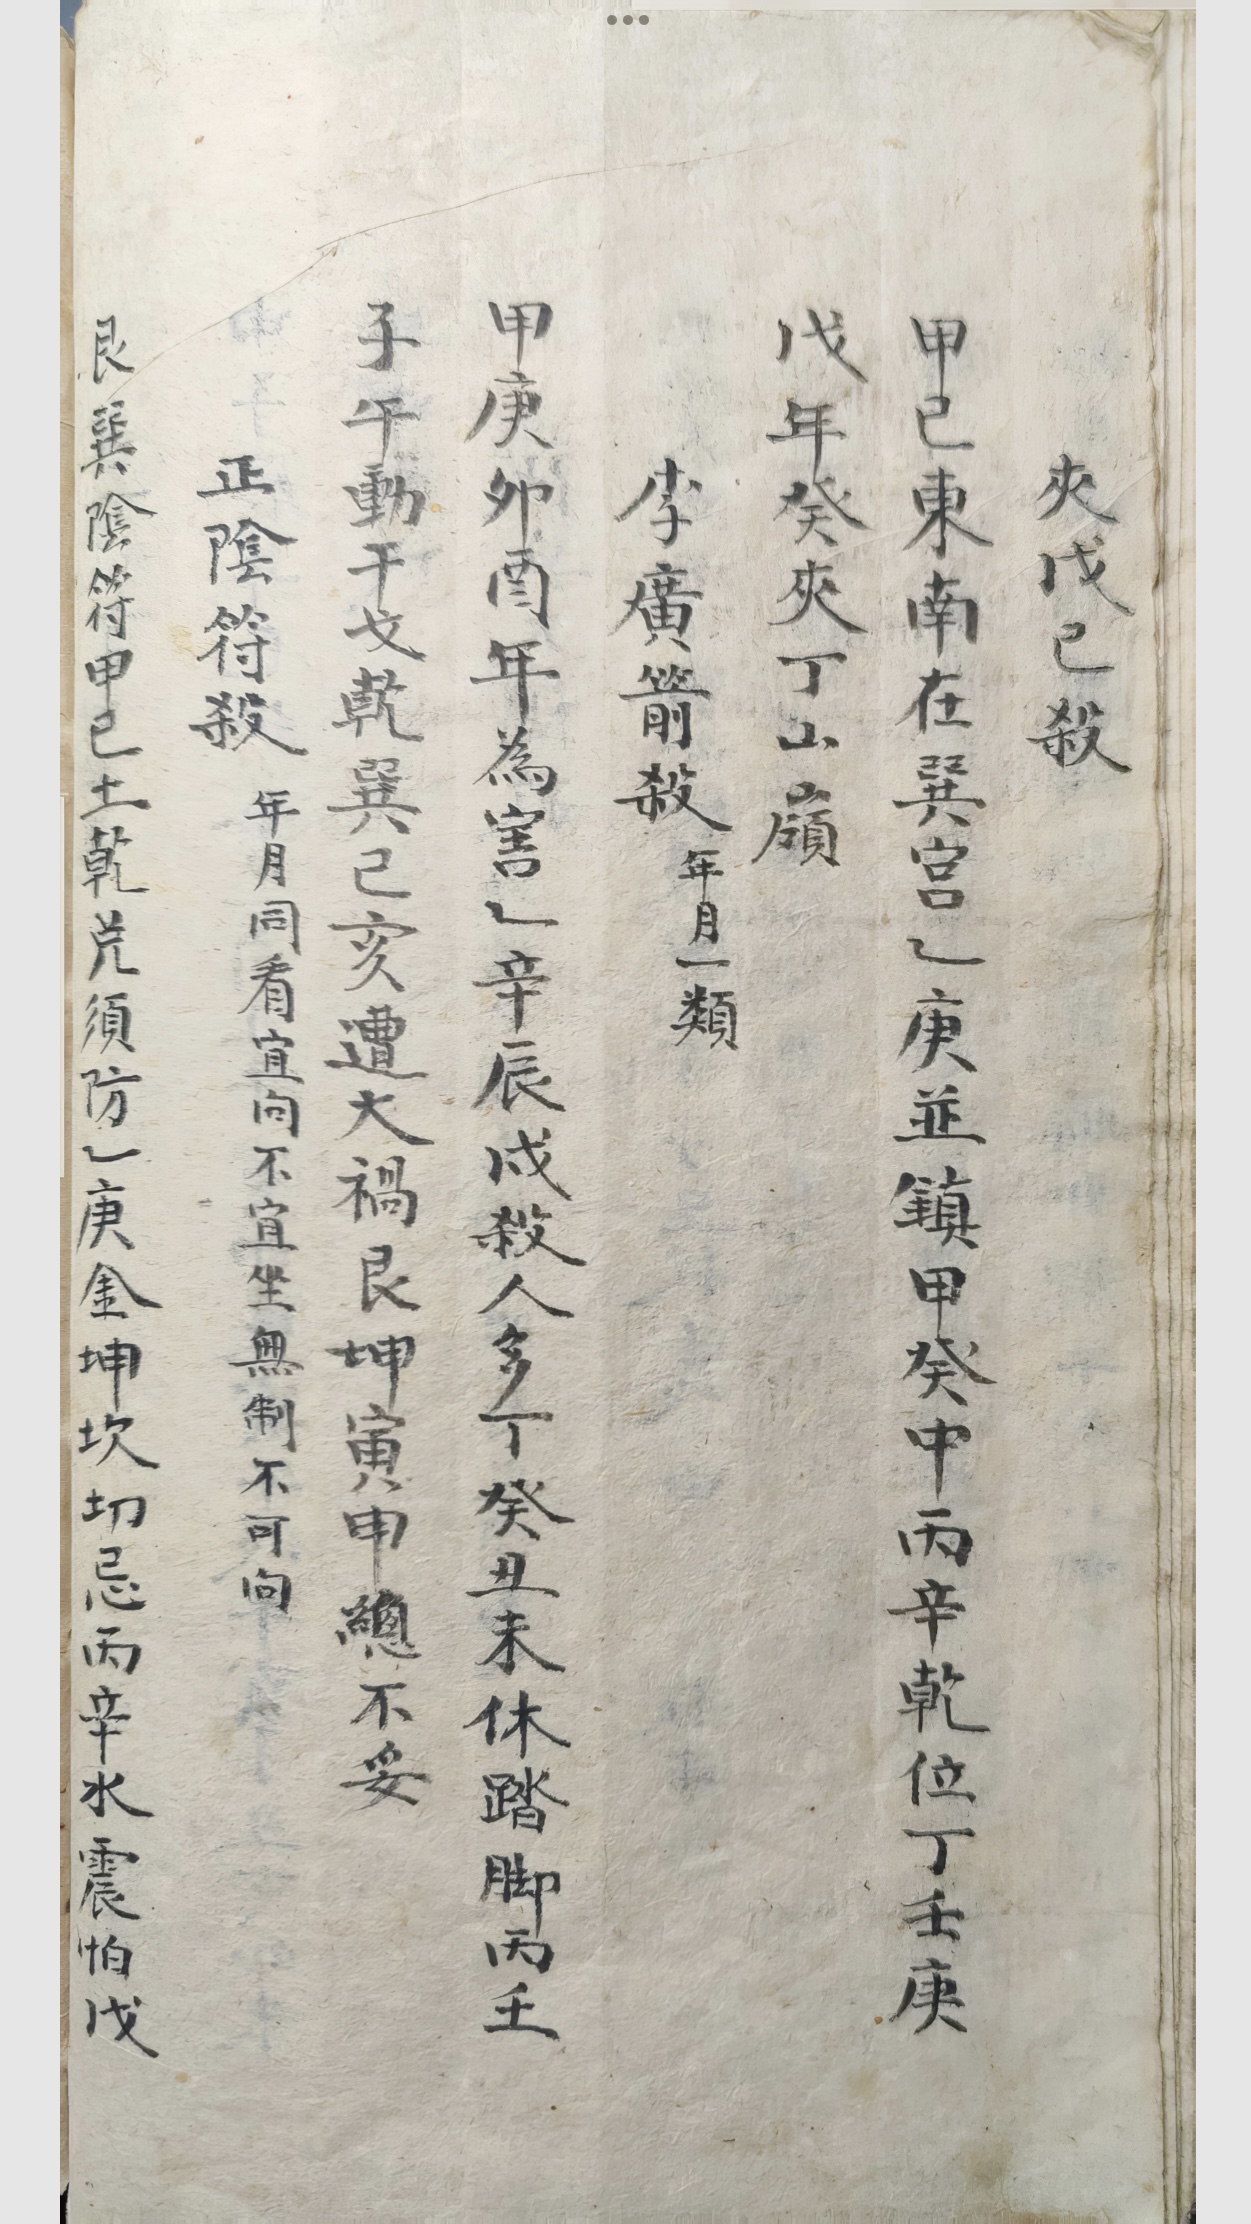 夾戊己殺
甲己東南在巽宫乙庚並鎮甲癸中丙辛乾位丁壬庚
戊年癸夾丁山嶺
李廣箭殺 年月一類
甲庚卯酉年為害乙辛辰戌殺人多丁癸丑未休踏脚丙壬
子午動干戈乾巽己亥遭大禍艮坤寅申總不妥
正陰符殺 年月同看宜向不宜坐無制不可向
艮巽陰符甲己土乾兌須防乙庚金坤坎切忌丙辛水震怕戊